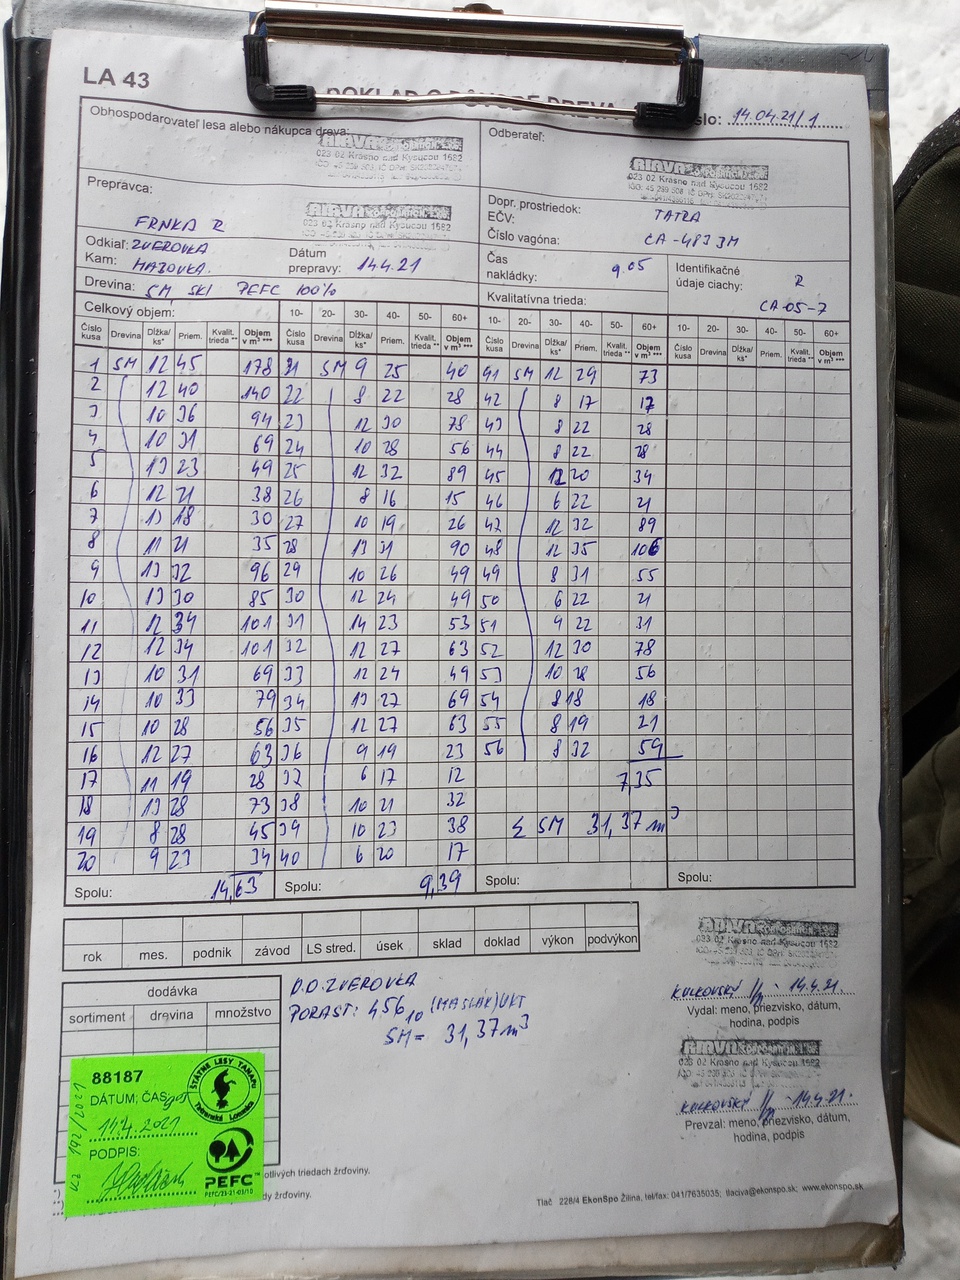 LA 43
DOKLAD O PÔVODE DREVA
14.04.21/1
Obhospodarovateľ lesa alebo nákupca dreva:
023 02 Krásno nad Kysucou 1682
Odberateľ:
023 02 Krásno nad Kysucou 1682
Prepravca:
FRNKA R
023 02 Krásno nad Kysucou 1682
Dopr. prostriedok: TATRA
EČV:
Číslo vagóna: CA-483 JM
Odkiaľ: ZVEROVKA
Kam: MAZOVKA
Dátum
prepravy: 14.4.21
Čas
nakládky: 9.05
Identifikačné
údaje ciachy: R
CA-05-7
Drevina: SM SKI PEFC 100%
Kvalitatívna trieda:
Celkový objem: 10- 20- 30- 40- 50- 60+ 10- 20- 30- 40- 50- 60+ 10- 20- 30- 40- 50- 60+
Číslo kusa Drevina Dĺžka/ks* Priem. Kvalit. trieda ** Objem v m³ *** Číslo kusa Drevina Dĺžka/ks* Priem. Kvalit. trieda ** Objem v m³ *** Číslo kusa Drevina Dĺžka/ks* Priem. Kvalit. trieda ** Objem v m³ *** Číslo kusa Drevina Dĺžka/ks* Priem. Kvalit. trieda ** Objem v m³ ***
1 SM 12 45 178 21 SM 9 25 40 41 SM 12 29 73
2 12 40 140 22 8 22 28 42 8 17 17
3 10 36 94 23 12 30 78 43 8 22 28
4 10 31 69 24 10 28 56 44 8 22 28
5 13 23 49 25 12 32 89 45 12 20 34
6 12 21 38 26 8 16 15 46 6 22 21
7 13 18 30 27 10 19 26 47 12 32 89
8 11 21 35 28 13 31 90 48 12 35 106
9 13 32 96 29 10 26 49 49 8 31 55
10 13 30 85 30 12 24 49 50 6 22 21
11 12 34 101 31 14 23 53 51 9 22 31
12 12 34 101 32 12 27 63 52 12 30 78
13 10 31 69 33 12 24 49 53 10 28 56
14 10 33 79 34 13 27 69 54 8 18 18
15 10 28 56 35 12 27 63 55 8 19 21
16 12 27 63 36 9 19 23 56 8 32 59
17 11 19 28 37 6 17 12 7,35
18 13 28 73 38 10 21 32
19 8 28 45 39 10 23 38 Σ SM 31,37 m³
20 9 23 34 40 6 20 17
Spolu: 14,63 Spolu: 9,39 Spolu: Spolu:
rok mes. podnik závod LS stred. úsek sklad doklad výkon podvýkon
023 02 Krásno nad Kysucou 1682
dodávka
sortiment drevina množstvo
O.O. ZVEROVKA
PORAST: 456 10 (MASLÁK) VKT
SM = 31,37 m³
14.4.21.
Vydal: meno, priezvisko, dátum,
hodina, podpis
023 02 Krásno nad Kysucou 1682
14.4.21.
Prevzal: meno, priezvisko, dátum,
hodina, podpis
88187
DÁTUM, ČAS
14.4.2021
PODPIS:
192/2021
ŠTÁTNE LESY TANAPU
Tatranská Lomnica
PEFC™
PEFC/23-21-03/10
otlivých triedach žrďoviny.
dy žrďoviny.
Tlač 228/4 EkonSpo Žilina, tel/fax: 041/7635035, tlaciva@ekonspo.sk; www.ekonspo.sk